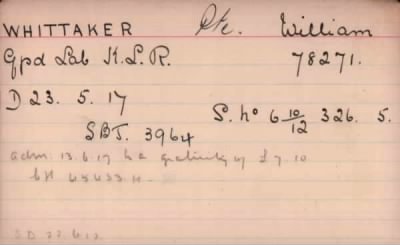 WHITTAKER Pte. William
Gpd Lab K.L.R. 78271.
D 23. 5. 17
S. No 6 10/12 326. 5.
SBT. 3964
adm. 13.6.17 gratuity of £7.10